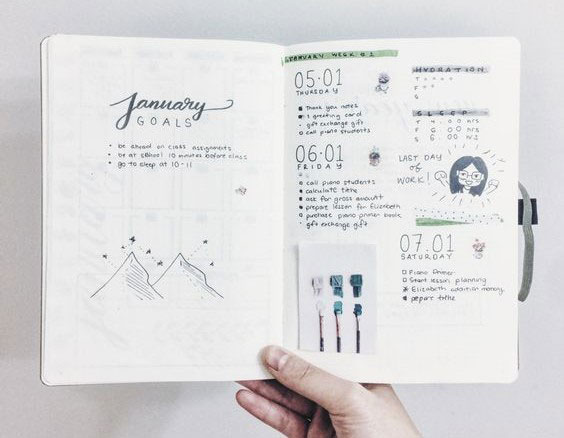 January
GOALS
• be ahead on class assignments
• be at school 10 minutes before class
• go to sleep at 10-11
JANUARY WEEK #1
05·01
THURSDAY
Thank you notes
greeting card
- gift exchange gift
o call piano students
06·01
FRIDAY
o call piano students
calculate tithe
ask for gross amount
prepare lesson for Elizabeth
purchase piano primer book
• gift exchange gift
HYDRATION
T
F
S
SLEEP
T 4:00 hrs
F 6:00 hrs
S 6:00 hrs
LAST DAY
OF
WORK!
07·01
SATURDAY
Piano Primer
Start lesson planning
Elizabeth addition memory
tithe